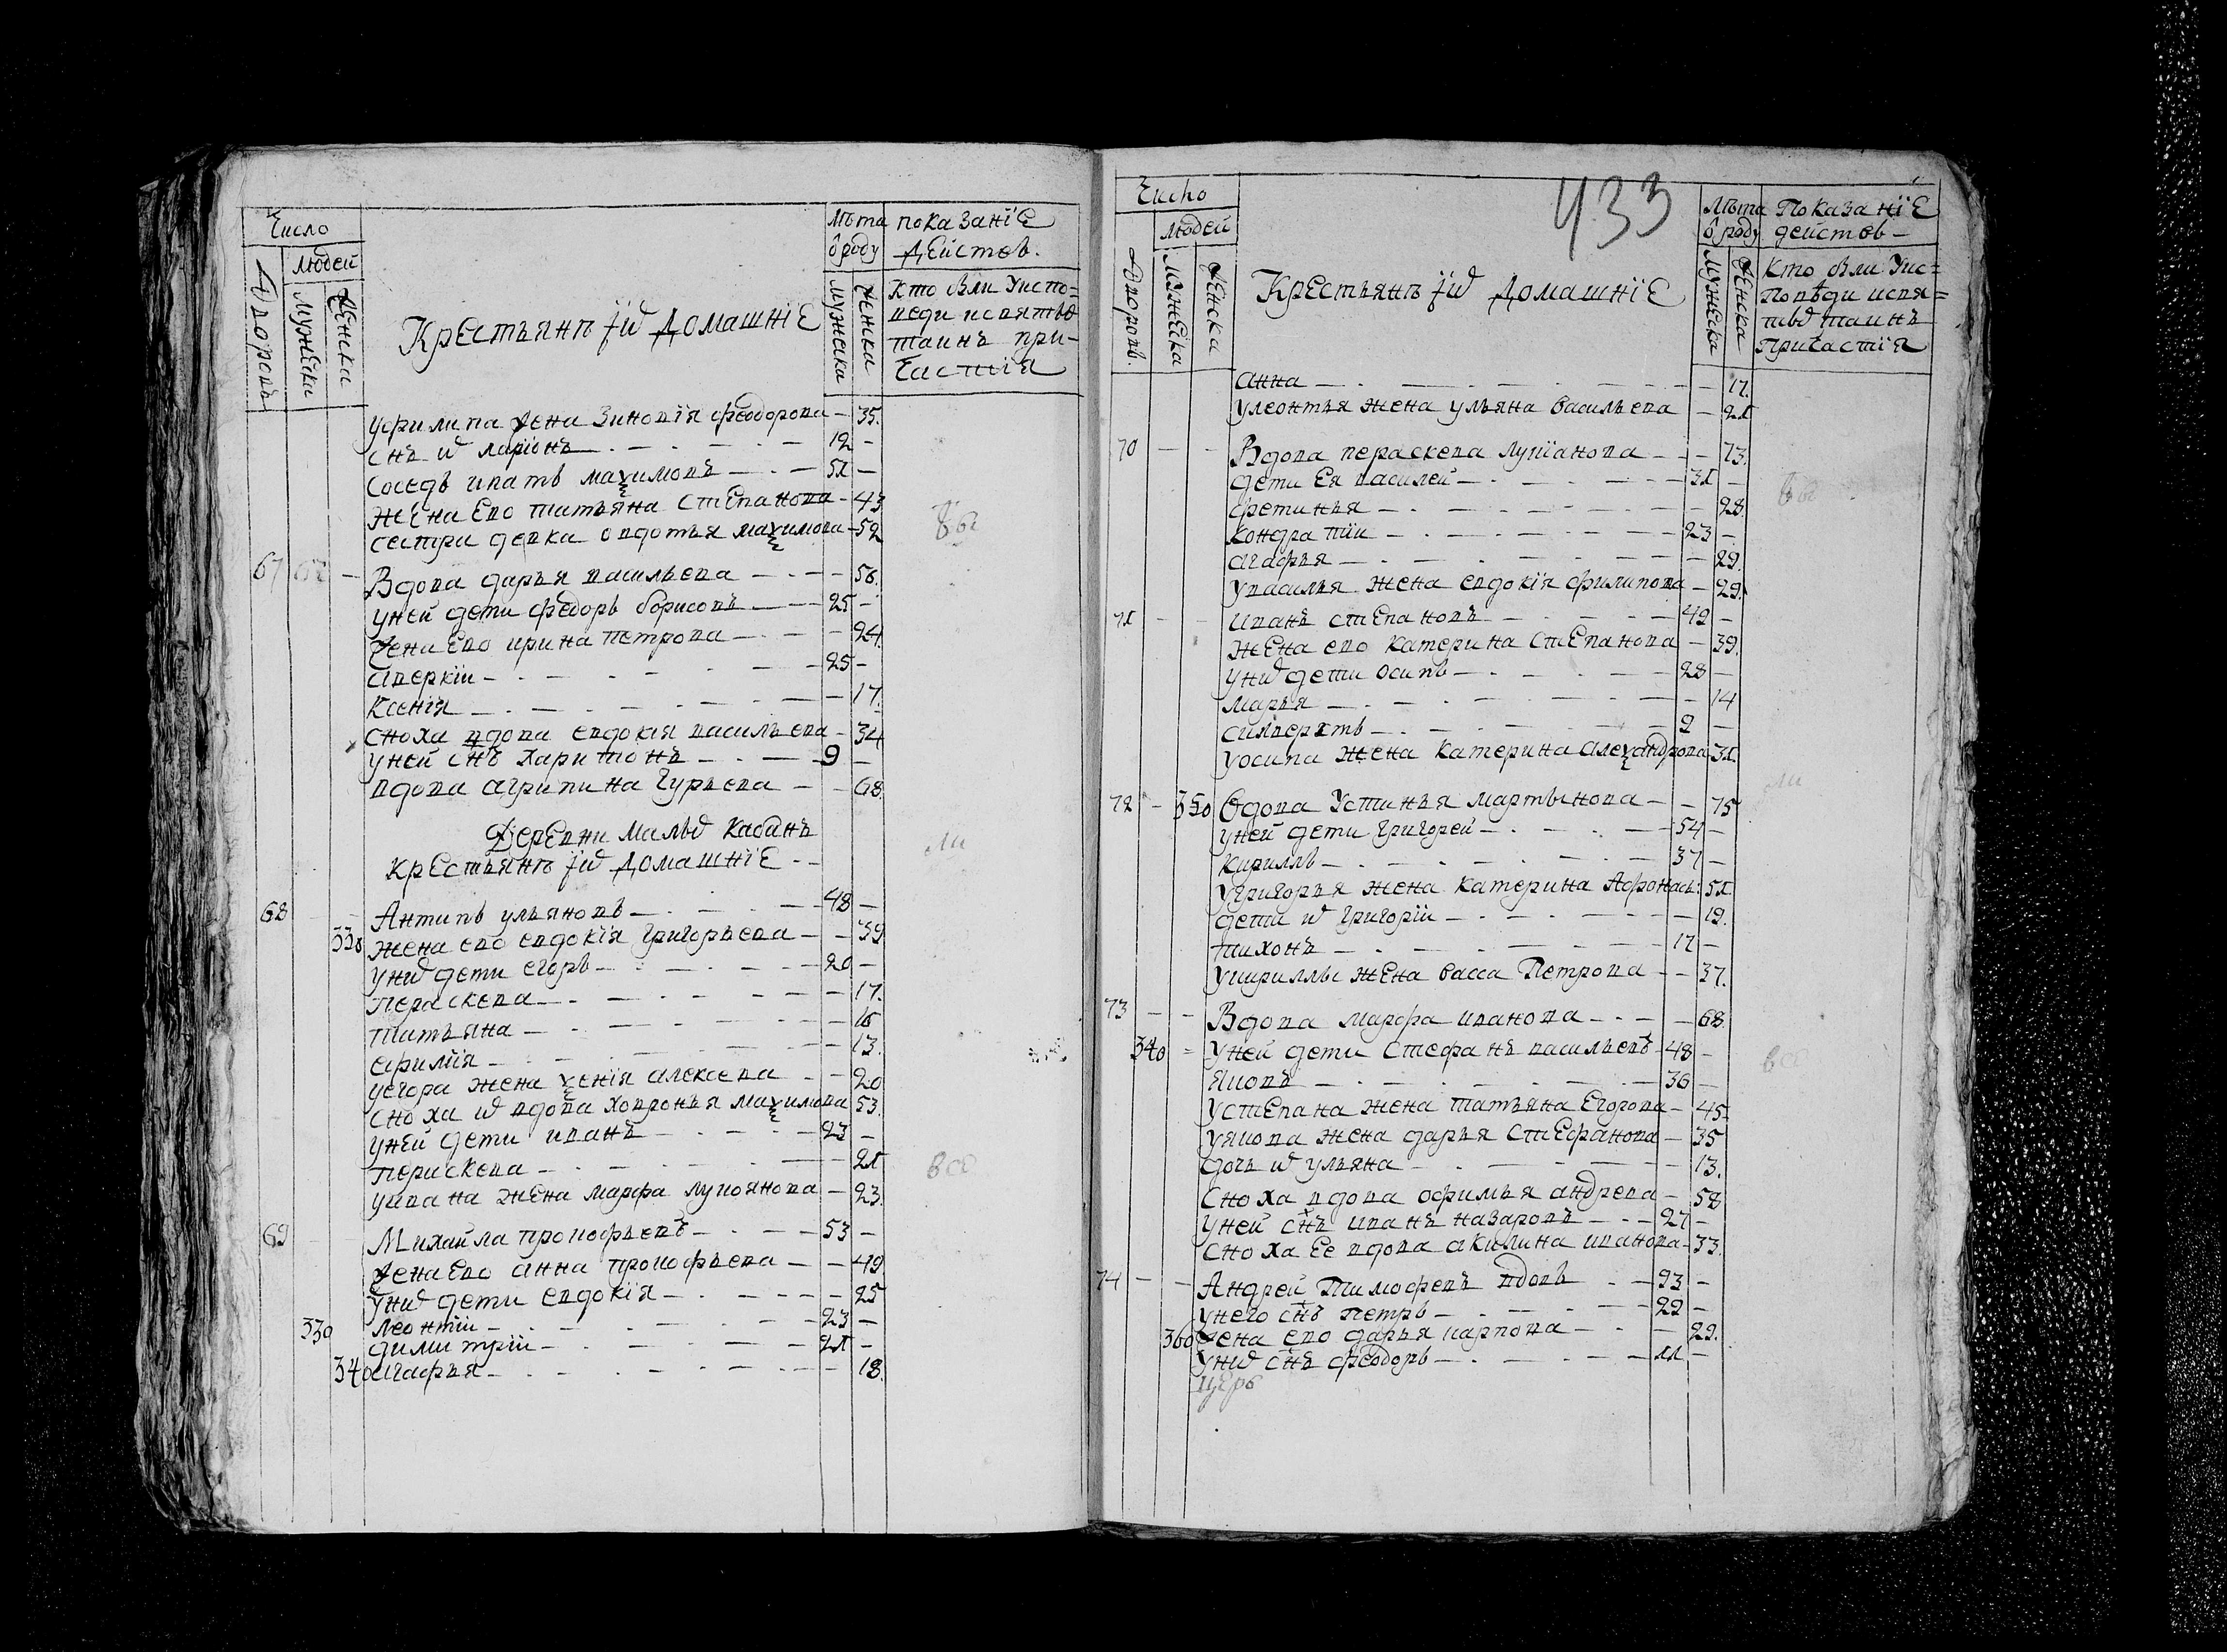 Число
людей
Дворовъ
мужеска
женска
Крестьяне и домашнїе
лѣта
ѿ роду
мужеска
женска
показанїе
действъ.
Кто были у испо=
веди и святыхъ
таинъ при-
частїя
у филипа жена Зиновїя феодорова - 35.
снъ ихъ ларїонъ - 12 -
сосѣдъ ипатъ маѯимовъ - 51 -
жена ево татьяна степанова - 43
сестра девка овдотья маѯимова - 52
67 Вдова дарья васильева - 56.
у ней дети федоръ борисовъ - 25 -
жена ево ирина петрова - 24.
аверкїи - 25 -
Ксенїя - 17.
сноха вдова евдокїя васильева - 34
у ней снъ харитонъ - 9 -
вдова агрипина гурьева - 68.
Деревни малыхъ Кабанъ
крестьяне и домашнїе
68 Антипъ ульяновъ - 48 -
жена ево евдокїя григорьева - 39
у нихъ дети егоръ - 20 -
пераскева - 17.
татьяна - 16
ефимїя - 13.
у егора жена ѯенїя алексеева - 20
сноха ихъ вдова ховронья маѯимова 53.
у ней дети иванъ - 23 -
перискева - 21
у ивана жена марфа лукоянова - 23.
69 Михайла прокофьевъ - 53 -
жена ево анна прокофьева - 49
у нихъ дети евдокїя - 25
330 леонтїи - 23 -
димитрїи - 21 -
340 агафья - 18.
433
Число
людей
Дворовъ.
мужеска
женска
Крестьяне и домашнїе
лѣта
ѿ роду
мужеска
женска
Показанїе
действъ -
Кто были у ис=
поведи и свя=
тыхъ таинъ
причастїя
анна - 17.
у леонтья жена ульяна васильева - 21
70 Вдова пераскева лукїанова - 73.
дети ея василей - 31 -
фетинья - 28.
кондратїи - 23 -
агафья - 29.
у василья жена евдокїя филипова - 29.
71 иванъ степановъ - 42 -
жена ево катерина степанова - 39.
у нихъ дети осипъ - 28 -
марья - 14
силверстъ - 2 -
у осипа жена катерина алеѯандрова 31.
72 350 Вдова устинья мартынова - 75
у ней дети григорей - 54 -
кириллъ - 37 -
у григорья жена катерина Афонась: 51
дети ихъ григорїи - 19.
тихонъ - 17 -
у кириллы жена васса петрова - 37.
73 Вдова марфа иванова - 68.
340 у ней дети стефанъ васильевъ - 48 -
яковъ - 36 -
у степана жена татьяна егорова - 45
у якова жена дарья стефанова - 35
дочь ихъ ульяна - 13.
сноха вдова офимья андреева - 58
у ней снъ иванъ назаровъ - 27 -
сноха ее вдова акилина иванова - 33.
74 Андрей тимофеевъ вдовъ - 93 -
у него снъ петръ - 22 -
360 жена ево дарья карпова - 29.
у нихъ снъ феодоръ - 11 -
церь